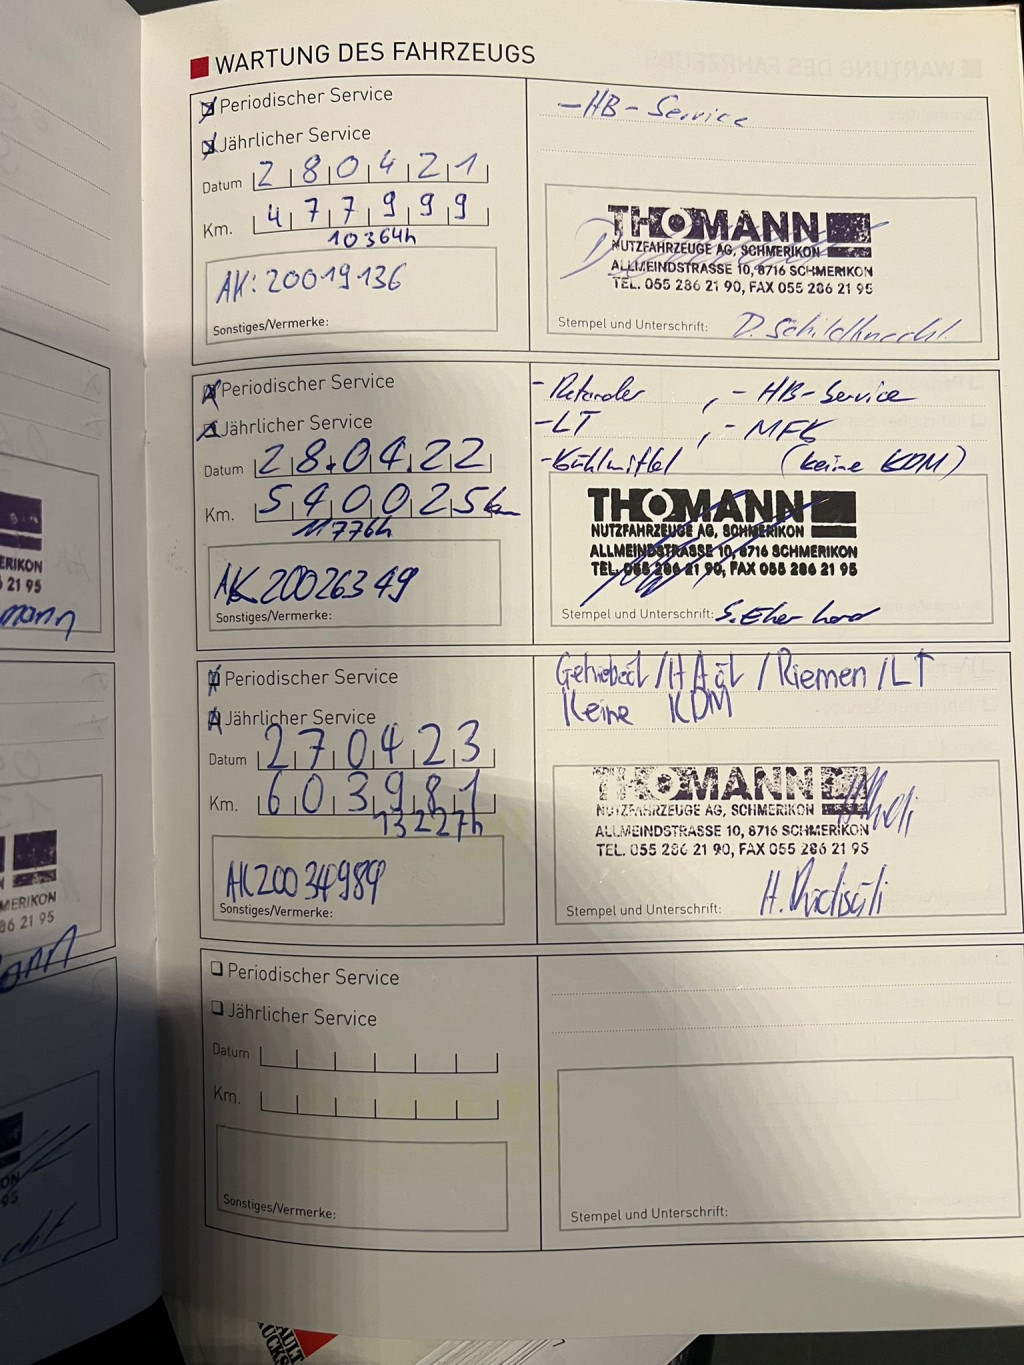 WARTUNG DES FAHRZEUGS
Periodischer Service
Jährlicher Service
Datum 280421
Km. 477999
10364h
AK: 20019136
Sonstiges/Vermerke:
-HB-Service
THOMANN
NUTZFAHRZEUGE AG, SCHMERIKON
ALLMEINDSTRASSE 10, 8716 SCHMERIKON
TEL. 055 286 21 90, FAX 055 286 21 95
Stempel und Unterschrift: D. Schildknecht
Periodischer Service
Jährlicher Service
Datum 28.04.22
Km. 540025km
11776h
AK20026349
Sonstiges/Vermerke:
-Retarder , -HB-Service
-LT , -MFK
-Kühlmittel (keine KDM)
THOMANN
NUTZFAHRZEUGE AG, SCHMERIKON
ALLMEINDSTRASSE 10, 8716 SCHMERIKON
TEL. 055 286 21 90, FAX 055 286 21 95
Stempel und Unterschrift: S. Eberhard
Periodischer Service
Jährlicher Service
Datum 270423
Km. 603981
13227h
AK20034989
Sonstiges/Vermerke:
Getriebeöl /HAöl /Riemen /LT
Keine KDM
THOMANN
NUTZFAHRZEUGE AG, SCHMERIKON
ALLMEINDSTRASSE 10, 8716 SCHMERIKON
TEL. 055 286 21 90, FAX 055 286 21 95
Stempel und Unterschrift: H.
Periodischer Service
Jährlicher Service
Datum
Km.
Sonstiges/Vermerke:
Stempel und Unterschrift: